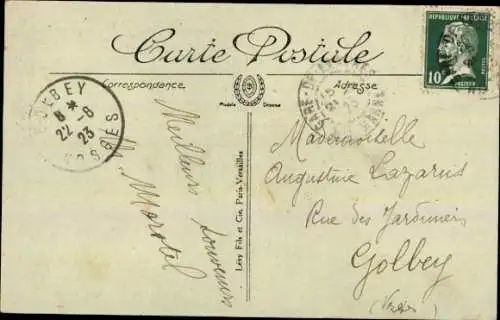 Carte Postale
Correspondance
Adresse
Modèle Déposé
REPUBLIQUE FRANÇAISE
10
POSTES
GOLBEY
8 *
22-6
23
VOSGES
GARE DE
Meilleurs Souvenirs
Lévy Fils et Cie, Paris-Versailles
Mademoiselle
Augustine Lazarus
Rue des Jardiniers
Golbey
(Vosges)